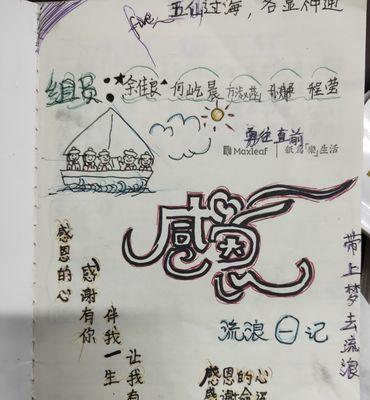 五仙过海，各显神通
组员：
何屹晨
程莹
勇往直前
Maxleaf 紙為「樂」生活
感恩
流浪一记
带上梦去流浪
感恩的心
感谢有你
伴我一生
让我有
感恩的心
感谢命运